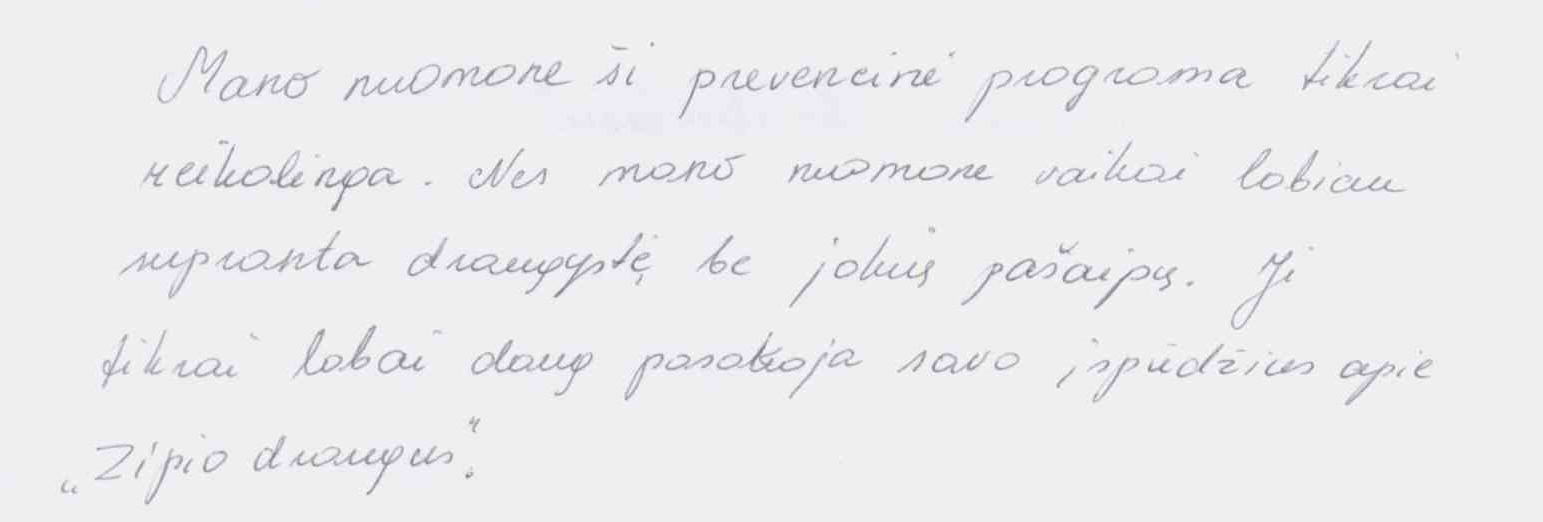 Mano nuomone ši prevencinė programa tikrai
reikalinga. Nes mano nuomone vaikai labiau
supranta draugystę be jokių pašaipų. Ji
tikrai labai daug pasakoja savo įspūdžius apie
„Zipio draugus“.